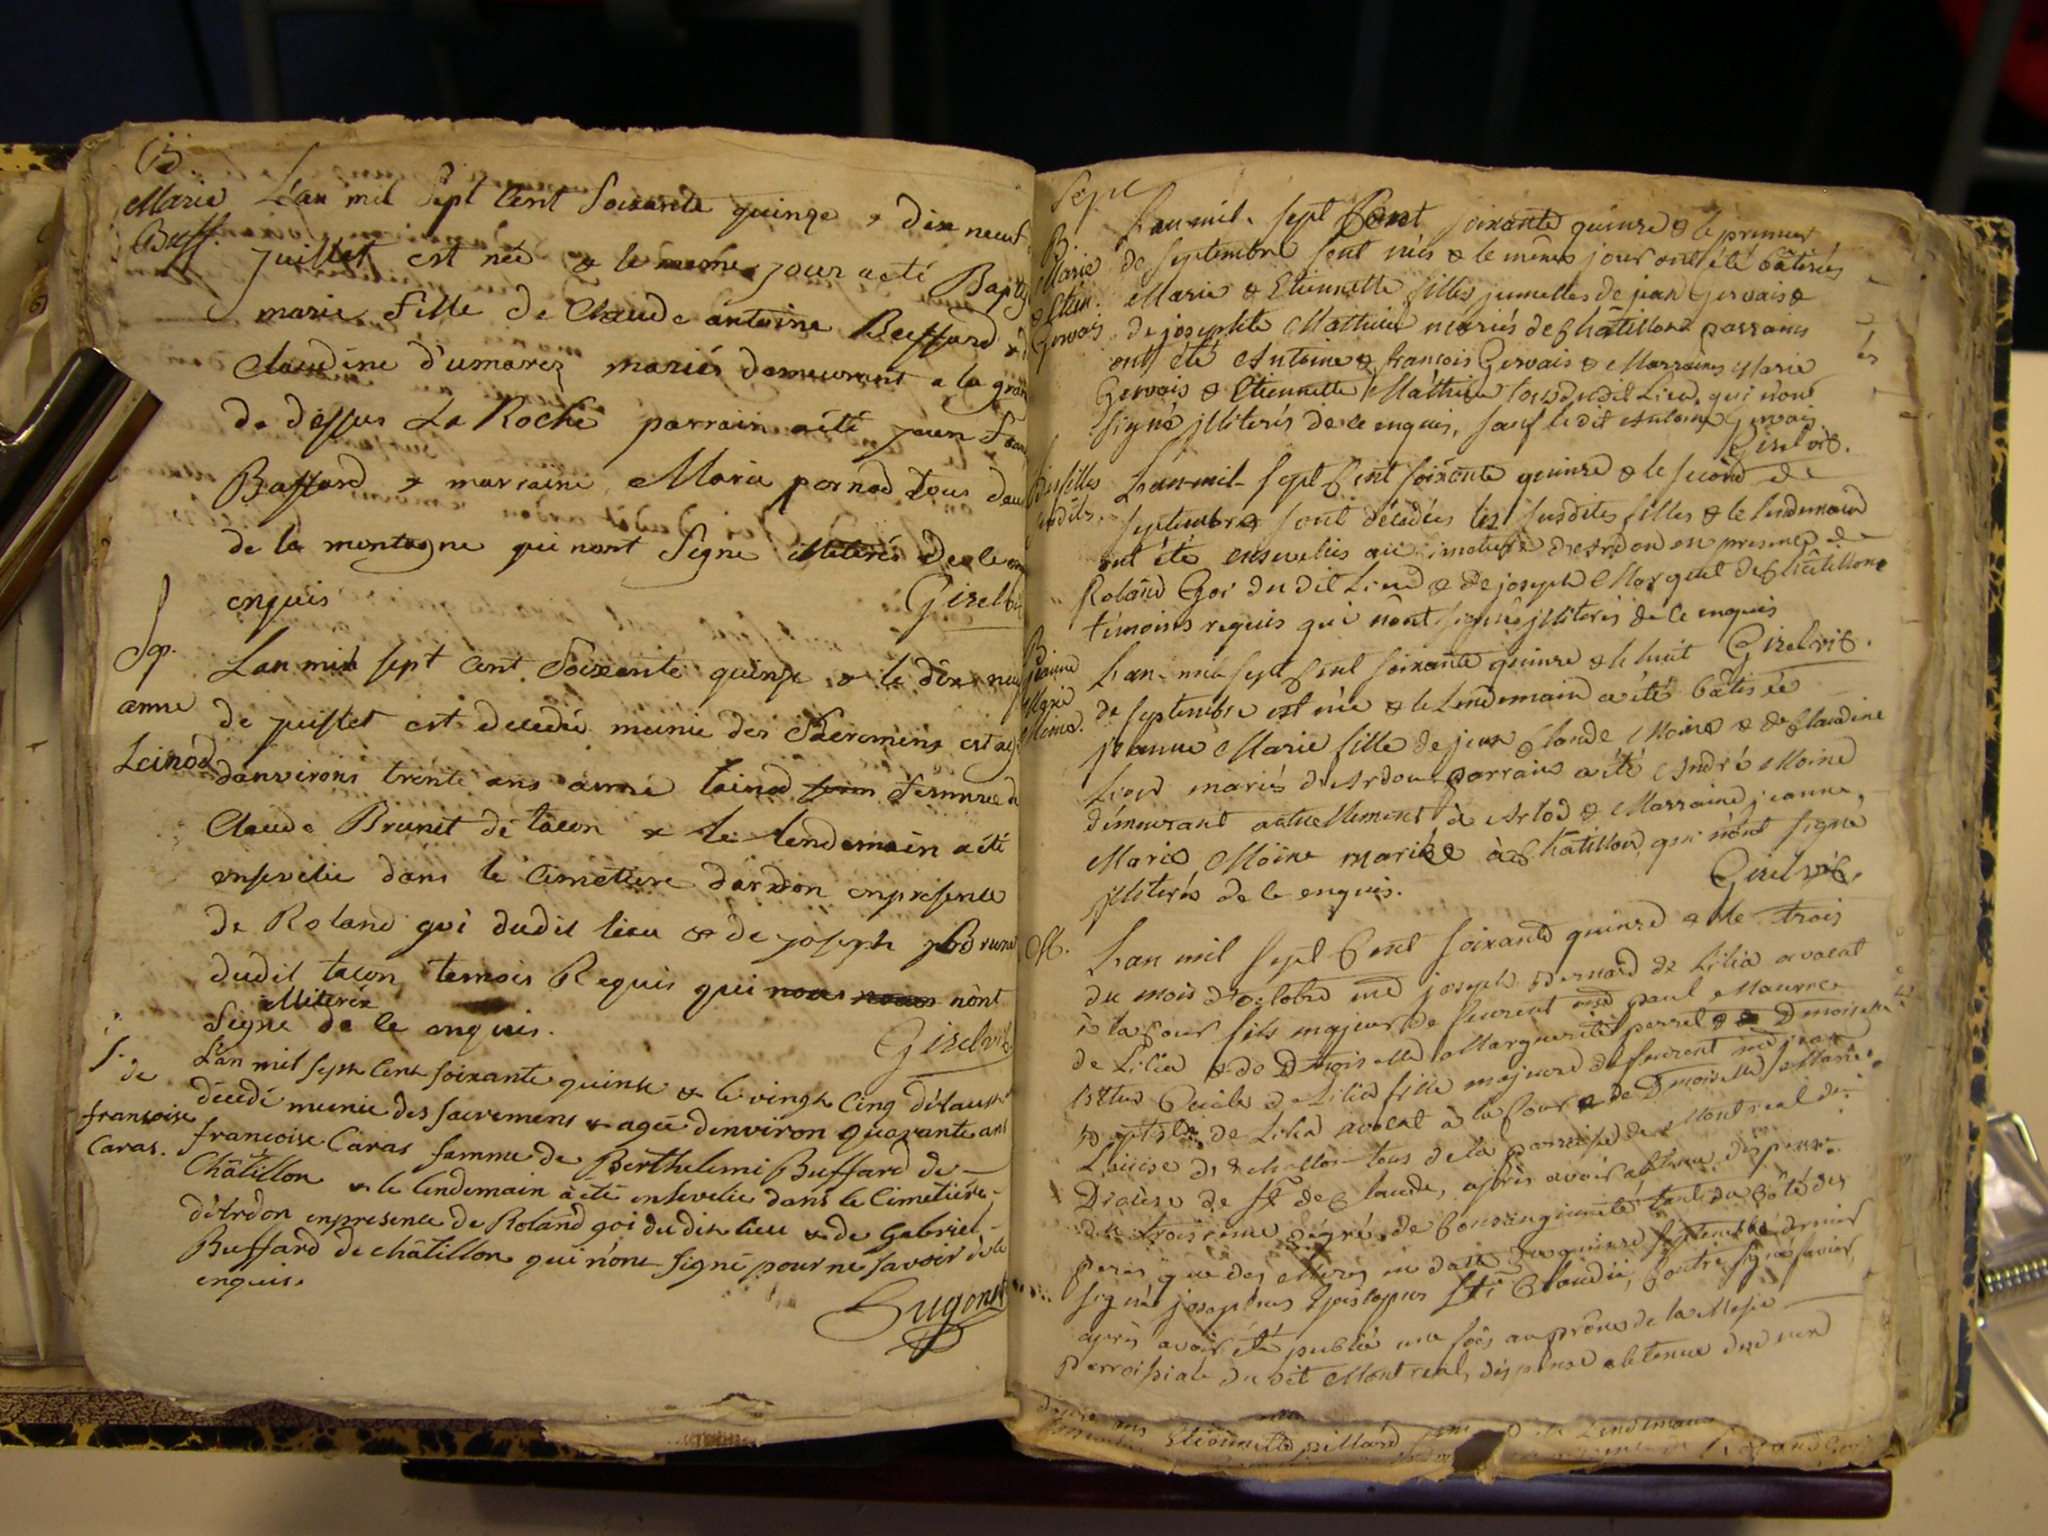 B.
Marie
Buff.
L'an mil Sept Cent Soixante quinze & dix neuf
juillet est née & le meme jour a eté Bapt
marie fille de Claude antoine Buffard &
Claudine d'umarez mariés demeurant a la gran
de dessus La Roche parrain a été jean
Buffard & marraine Marie pernod tous deux
de la montagne qui nont Signe illiterés de le
enquis
Girel
Sep.
anne
Leinod
Lan mil sept cent Soixante quinze & le dix neu
de juillet est decedée munie des Sacremens et agé
danvirons trente ans anne Leinod femme de
Claude Brunet de tacon & le lendemain a été
ensevelie dans le Cimetiere dardon enpresence
de Roland goi dudit lieu & de joseph Brune
dudit tacon temois Requis qui nônt
Signe illiterés de le enquis.
Girel vic
S.
de
françoise
Caras.
L'an mil sept Cent soixante quinze & le vingt Cinq d'étaoust
décedé munie des sacremens & agée denviron quarante ans
françoise Caras famme de Berthelemi Buffard de
Châtillon & le lendemain à été ensevelie dans le Cimetiére
d'Ardon enpresence de Roland goi du dit lieu & de Gabriel
Buffard de châtillon qui n'ont Signé pour ne savoir de le
enquis.
Sugont
Sept
B.
Marie
& Etien.
Gervais
L'an mil Sept Cent soixante quinze & le premier
de septembre sont nées & le même jour ont été bâtisées
Marie & Etiennette filles jumelles de jean Gervais &
de josephte Mathieu mariés de Châtillon parrains
ont été Antoine & françois Gervais & Marraines Marie
Gervais & Etiennette Mathieu tous dudit Lieu qui n'ont
signé illiterés de ce enquis, sauf le dit Antoine Gervais
Girel vic.
filles
L'an mil Sept Cent soixante quinze & le second de
septembre sont décédées les susdites filles & le lendemain
ont été ensevelies au cimetiere d'Ardon en presence de
Roland Goi du dit Lieu & de joseph Marquet de Châtillon
témoins requis qui n'ont signé illiterés de ce enquis
Girel vic.
jeanne
Marie
Moine.
L'an mil sept Cent soixante quinze & le huit
de septembre est née & le Lendemain a été bâtisée
jeanne Marie fille de jean Claude Moine & de Claudine
mariés d'Ardon parrain a été André Moine
démeurant actuellement à Arlod & Marraine jeanne
Marie Moine mariée à Châtillon, qui n'ont signe
illiterés de le enquis.
Girel vic.
Oct.
L'an mil Sept Cent soixante quinze & le trois
du mois d'octobre joseph Bernard de Lilia avocat
à la Cour fils majeur de feurent paul Maurice
de Lilia & de Dmoiselle Marguerite perret & Dmoiselle
Cecile de Lilia fille majeure de feurent jean
de Lilia avocat à la Cour & de Dmoiselle Marie
Louise de tous de la paroisse de Montreal
Diocèse de St. de Claude, après avoir obtenu dispense
du troisieme dégré de Consanguinité tant du Côté des
peres que des Meres en date du quinze septembre dernier
signé josephus Episcopus Sti Claudii,
après avoir été publié une fois au prône de la Messe
parroissiale du dit Montreal, dispense obtenue
Etiennette pillard & le Lendemain